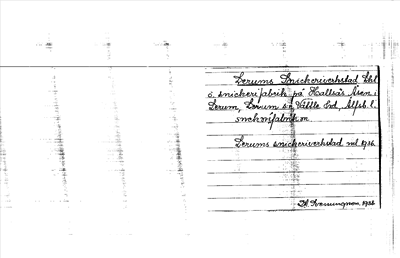 Lerums Snickeriverkstad, 
o. snickerifabrik på Hallsås Åsen i
Lerum, Lerum sn, Vättle hd, Älfsb. l.
snickerifabrik m.
Lerums snickeriverkstad 1916.
1936